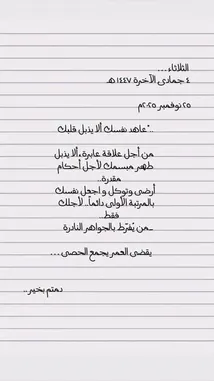 الثلاثاء...
٤ جمادى الآخرة ١٤٤٧ هـ
٢٥ نوفمبر ٢٠٢٥م
.."عاهد نفسك ألا يذبل قلبك
من أجل علاقة عابرة، ألا يذبل
طهر مبسمك لأجل أحكام
مقدرة..
أرضى وتوكل و اجعل نفسك
بالمرتبة الأولى دائماً.. لأجلك
فقط..
_من يُفرّط بالجواهر النادرة
يقضى العمر يجمع الحصى ...
دمتم بخير ..